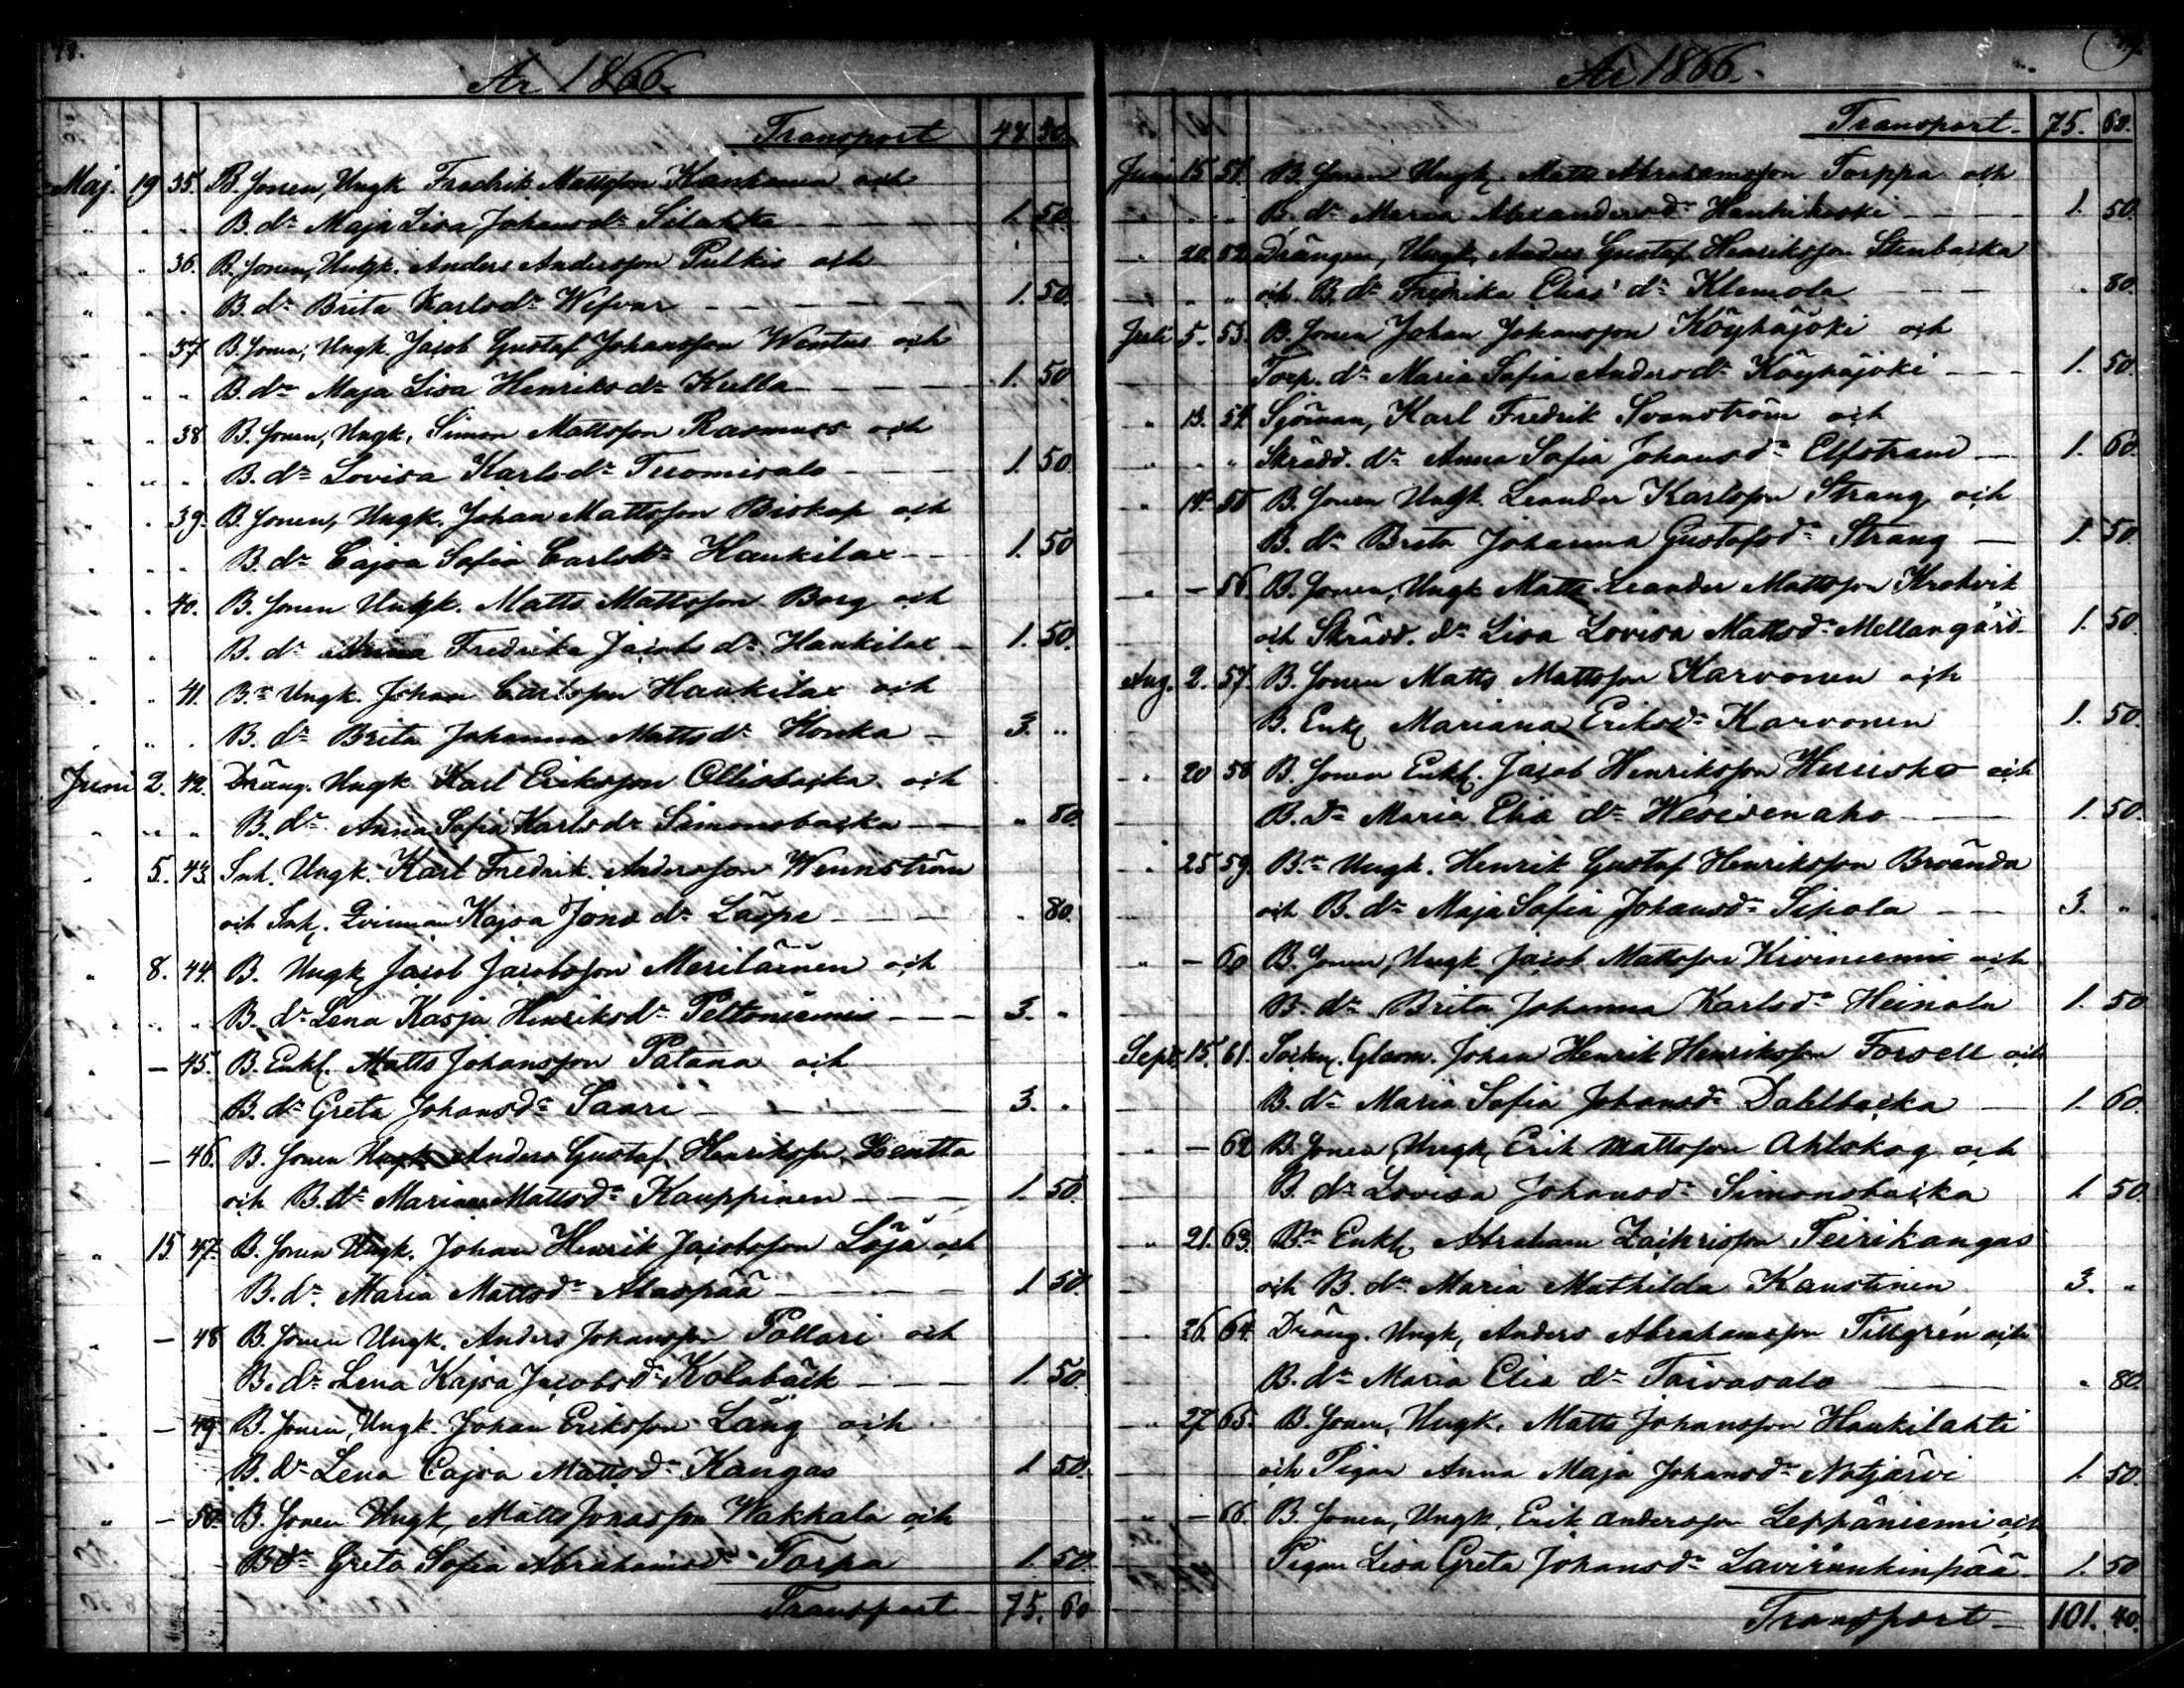 78.
År 1866.
Transport 47. 50.
Maj. 19 35. B. Sonen, Ungk Fredrik Mattsson Kankanen och
" " " B. dr Maja Lisa Johansdr Silahta 1. 50.
" " 36. B. Sonen, Ungk. Anders Andersson Pulkis och
" " " B. dr Brita Karlsdr Wefvar 1. 50.
" " 37 B. Sonen, Ungk. Jacob Gustaf Johansson Wentus och
" " " B. dr Maja Lisa Henriksdr Kulla 1. 50
" " 38 B. Sonen, Ungk. Simon Mattsson Rasmus och
" " " B. dr Lovisa Karlsdr Tuomisalo 1. 50
" " 39. B. Sonen, Ungk. Johan Mattsson Biskop och
" " " B. dr Cajsa Sofia Carlsdr Haukilax 1. 50
" " 40. B. Sonen Ungk. Matts Mattsson Borg och
" " B. dr Anna Fredrika Jacobsdr Haukilax 1. 50.
" " 41. Bn Ungk. Johan Carlsson Haukilax och
" " " B. dr Brita Johanna Mattsdr Honka 3. "
Juni 2. 42. Dräng. Ungk Karl Eriksson Ollisbacka och
" " " B. dr Anna Sofia Karlsdr Simonsbacka " 80.
" 5. 43. Inh. Ungk. Karl Fredrik Andersson Wennström
och Inh. Qvinnan Kajsa Jonsdr Läspe " 80.
" 8. 44. B. Ungk Jacob Jacobsson Meriläinen och
" " " B. dr Lena Kasja Henriksdr Peltoniemi 3. "
" – 45. B. Enkl. Matts Johansson Patana och
B. dr Greta Johansdr Saari 3. "
" – 46. B. Sonen Ungk Anders Gustaf Henriksson Lentta
och B. dr Mariana Mattsdr Kauppinen 1. 50.
" 15 47. B. Sonen Ungk. Johan Henrik Jacobsson Löjä och
B. dr. Maria Mattsdr Alaspää 1 50.
" – 48 B. Sonen Ungk. Anders Johansson Pollari och
B. dr Lena Kajsa Jacobsdr Kolabäck 1. 50.
" – 49 B. Sonen, Ungk. Johan Eriksson Lång och
B. dr Lena Cajsa Mattsdr Kangas 1 50.
" – 50. B. Sonen Ungk, Matts Jonasson Wakkala och
B dr Greta Sofia Abrahamsdr Torpa 1. 50.
Transport 75. 60
År 1866.
Transport 75. 60.
Juni 15 51. B. Sonen Ungk. Matts Abrahamsson Torppa och
" " " B. dr Maria Alexandersdr Hanhikoski 1. 50.
" 20. 52. Drängen, Ungk, Anders Gustaf Henriksson Stenbacka
" " " och B. dr Fredrika Elias' dr Klemola " 80.
Juli 5. 53. B. Sonen Johan Johansson Köyhäjoki och
Torp. dr Maria Sofia Andersdr Köyhäjoki 1. 50.
" 13. 54. Sjöman, Karl Fredrik Svanström och
" " " Skrädd. dr Anna Sofia Johansdr Elfstrand 1. 60.
" 14. 55 B. Sonen Ungk. Leander Karlsson Strang och
B. dr Brita Johanna Gustafsdr Strang 1. 50.
" – 56. B. Sonen, Ungk Matts Leander Mattsson Krokvik
och Skrädd. dr Lisa Lovisa Mattsdr Mellangård 1. 50.
Aug. 2. 57. B. Sonen Matts Mattsson Karvonen och
B. Enk Mariana Eriksdr Karvonen 1. 50.
" 20 58 B. Sonen Enkl. Jacob Henriksson Huusko och
B. Dr Maria Elia dr Wesisenaho 1. 50.
" 25 59. Bn Ungk. Henrik Gustaf Henriksson Broända
och B. dr Maja Sofia Johansdr Sipola 3. "
" – 60 B. Sonen, Ungk Jacob Mattsson Kiviniemi och
B. dr Brita Johanna Karlsdr Heinola 1. 50
Sept. 15. 61. Sockn. Glasm. Johan Henrik Henriksson Forsell och
B. dr Maria Sofia Johansdr Dahlbacka 1. 60.
" – 62 B. Sonen, Ungk, Erik Mattsson Ahlskog och
B. dr Lovisa Johansdr Simonsbacka 1. 50.
" 21. 63. Bn Enkl Abraham Zachrisson Teirikangas
och B. dr Maria Mathilda Kaustinen 3. "
" 26. 64. Dräng. Ungk, Anders Abrahamsson Tillgrén och
B. dr Maria Elia dr Taivasalo " 80.
" 27 65. B. Sonen, Ungk. Matts Johansson Haukilahti
och Pigan Anna Maja Johansdr Notjärvi 1. 50
" – 66. B. Sonen, Ungk, Erik Andersson Leppäniemi och
Pigan Lisa Greta Johansdr Laviränkinpää 1. 50
Transport 101. 40.